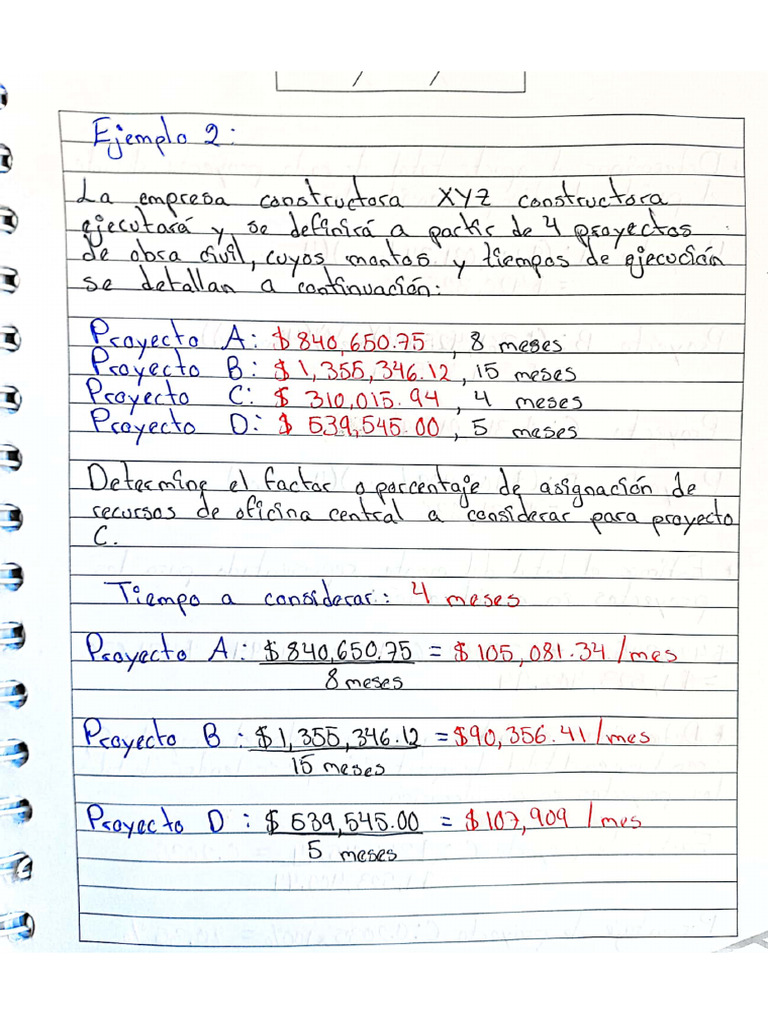 Ejemplo 2:
La empresa constructora XYZ constructora
ejecutará y se definirá a partir de 4 proyectos
de obra civil, cuyos montos y tiempos de ejecución
se detallan a continuación:
Proyecto A: $840,650.75, 8 meses
Proyecto B: $1,355,346.12, 15 meses
Proyecto C: $ 310,015.94, 4 meses
Proyecto D: $ 539,545.00, 5 meses
Determine el factor o porcentaje de asignación de
recursos de oficina central a considerar para proyecto
C.
Tiempo a considerar: 4 meses
Proyecto A: $840,650.75 = $105,081.34/mes
8 meses
Proyecto B: $1,355,346.12 = $90,356.41/mes
15 meses
Proyecto D: $ 539,545.00 = $107,909/mes
5 meses